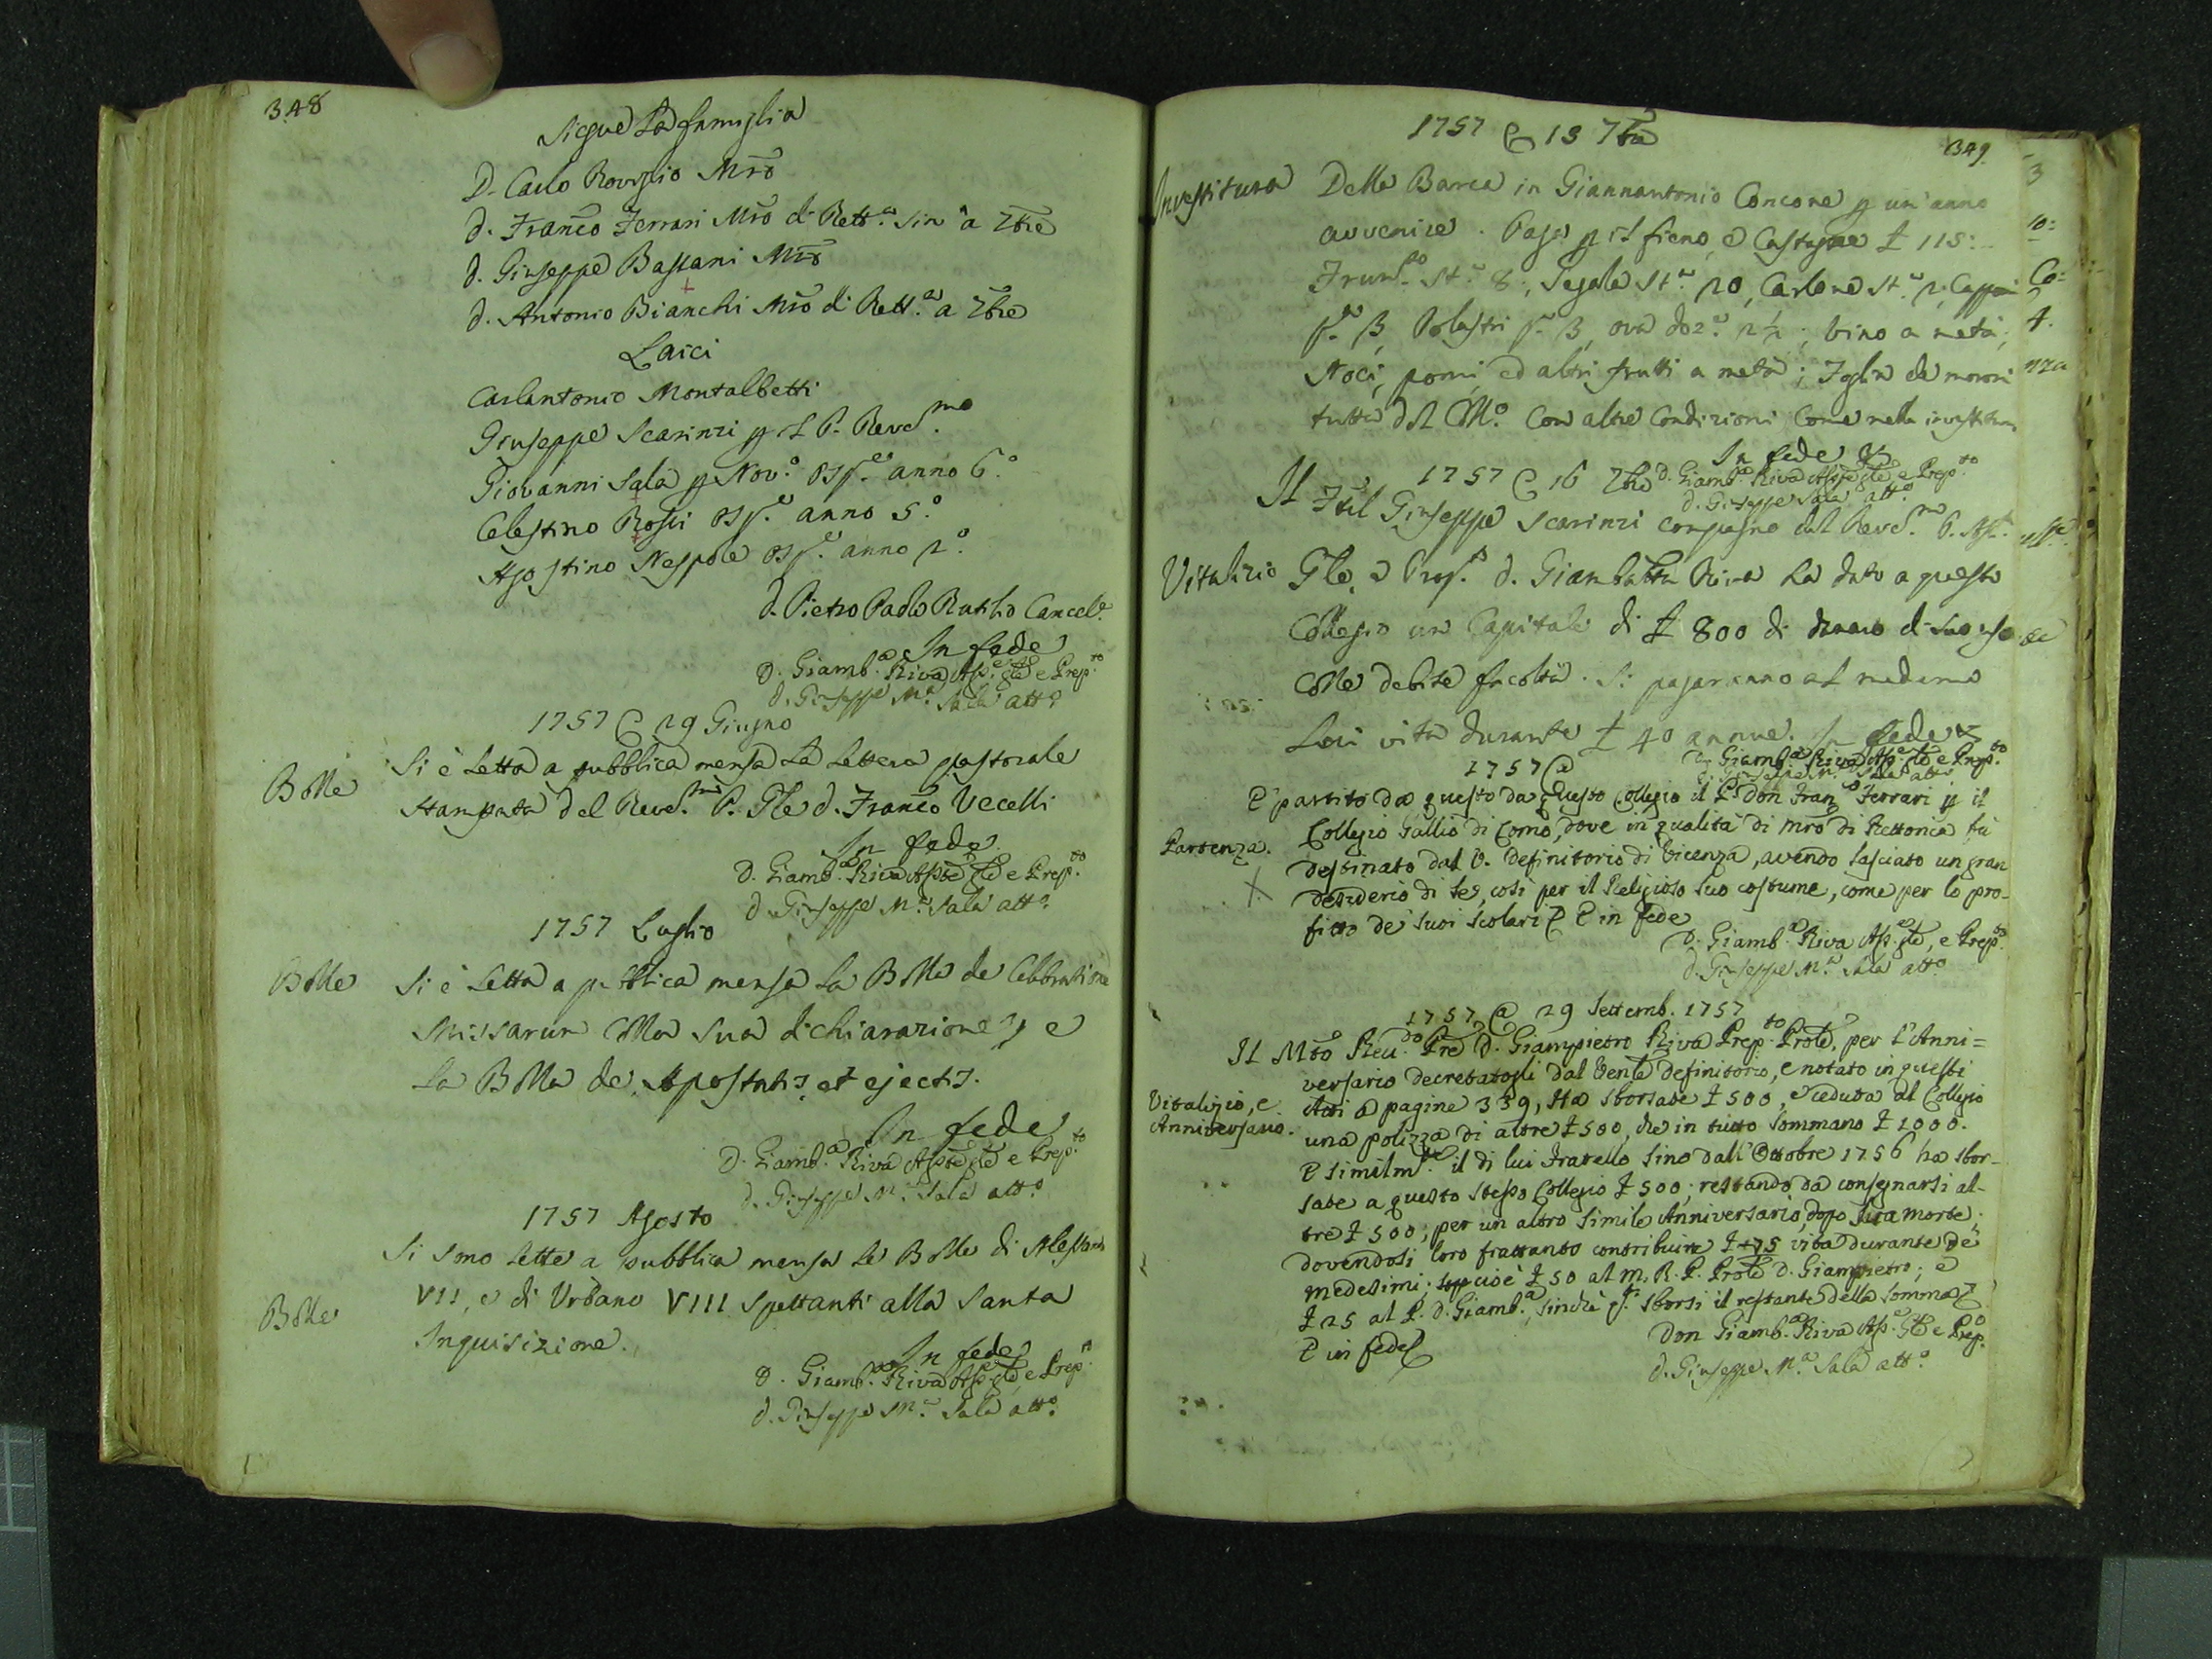 348
Siegue La famiglia
D. Carlo Roviglio Mrõ
d. Franc̃o Ferrari Mrõ di Rett.ca sin a 7bre
d. Giuseppe Bassani Mrõ
d. Antonio Bianchi Mrõ di Rett.ca a 7bre
Laici
Carlantonio Montalbetti
Giuseppe Scarinzi p il P. Revd.mo
Giovanni Sala p Nov.o osp.e anno 6.o
Celestino Rossi osp.e anno 5.o
Agostino Nespole osp.e anno 2.o
d. Pietro Paolo Rusho Cancel.e
In fede
D. Giamb.a Riva Ass.e Gle e Prep.to
d. Giuseppe M.a Sala att.o
1757 @ 29 Giugno
Bolle
Si è Letta a pubblica mensa La Lettera pastorale
stampata del Revd.mo P. Gle d. Franc̃o Vecelli
In fede
D. Giamb.a Riva Ass.te Gle e Prep.to
d. Giuseppe M.a Sala att.o
1757 Luglio
Bolle
Si è Letta a pubblica mensa La Bolla de Celebratione
Missarum colla sua dichiarazione, e
La Bolla de Apostatis, et ejectis.
In fede
D. Giamb.a Riva Ass.te Gle e Prep.to
d. Giuseppe M.a Sala att.o
1757 Agosto
Si sono Lette a pubblica mensa Le Bolle di Alessand
Bolle
VII, e di Urbano VIII spettanti alla Santa
Inquisizione.
In fede
D. Giamb.a Riva Ass.e Gle, e Prep.to
d. Giuseppe M.a Sala att.o
349
1757 @ 13 7bre
Investitura
Della Barca in Giannantonio Concone p un' anno
avvenire. Paga p il fieno, e Castagne £ 115:
Frum.to st.a 8, Segale st.a 20, Carlone st.a 2, Capponi
p.a 3, Polastri p.a 3, ova doz.a 2½; vino a metà,
Noci, pomi, ed altri frutti a metà; Foglia de moroni
tutta del M.o Con altre Condizioni Come nella investitura
In fede
D. Giamb.a Riva Ass.te Gle e Prep.to
d. Giuseppe Sala att.o
1757 @ 16 7bre
Il Frãl Giuseppe Scarinzi compagno del Revd.mo P. Ass.
Vitalizio
Gle, e Prep.to d. Giambatta Riva ha dato a questo
Collegio un Capitale di £ 800 di denaro di suo uso
colle debite facoltà. Si pagaranno al medemo
Lui vita durante £ 40 annue. In fede
D. Giamb.a Riva Ass.te Gle e Prep.to
d. Giuseppe M.a Sala att.o
1757 @
E' partito da questo da questo Collegio il P. Don Fran.co Ferrari p il
Collegio Gallio di Como, dove in qualità di mrõ di Rettorica fù
Partenza.
destinato dal V. Definitorio di Vicenza, avendo lasciato un gran
desiderio di se, così per il Religioso suo costume, come per lo pro-
fitto de' suoi scolari E in fede
D. Giamb.a Riva Ass.e Gle, e Prep.to
d. Giuseppe M.a Sala att.o
1757 @ 29 Settemb. 1757
Il Mto Reu.do Pre D. Giampietro Riva Prep.to Prole, per l'Anni=
versario decretatogli dal Venle Definitorio, e notato in questi
Vitalizio, e
Anniversario.
Atti a pagine 339, Ha sborsate £ 500, e ceduta al Collegio
una polizza di altre £ 500, che in tutto sommano £ 1000.
E similm.te il di lui Fratello sino dall' Ottobre 1756 ha sbor-
sate a questo stesso Collegio £ 500; restando da consegnarsi al-
tre £ 500; per un altro simile Anniversario, dopo sua morte,
dovendosi loro frattanto contribuire £ 75 vita durante de'
medesimi; cioè £ 50 al M. R. P. Prole D. Giampietro; e
£ 25 al P. D. Giamb.a, sinchè sborsi il restante della somma
E in fede
Don Giamb.a Riva Ass.e Gle e Prep.o
d. Giuseppe M.a Sala att.o